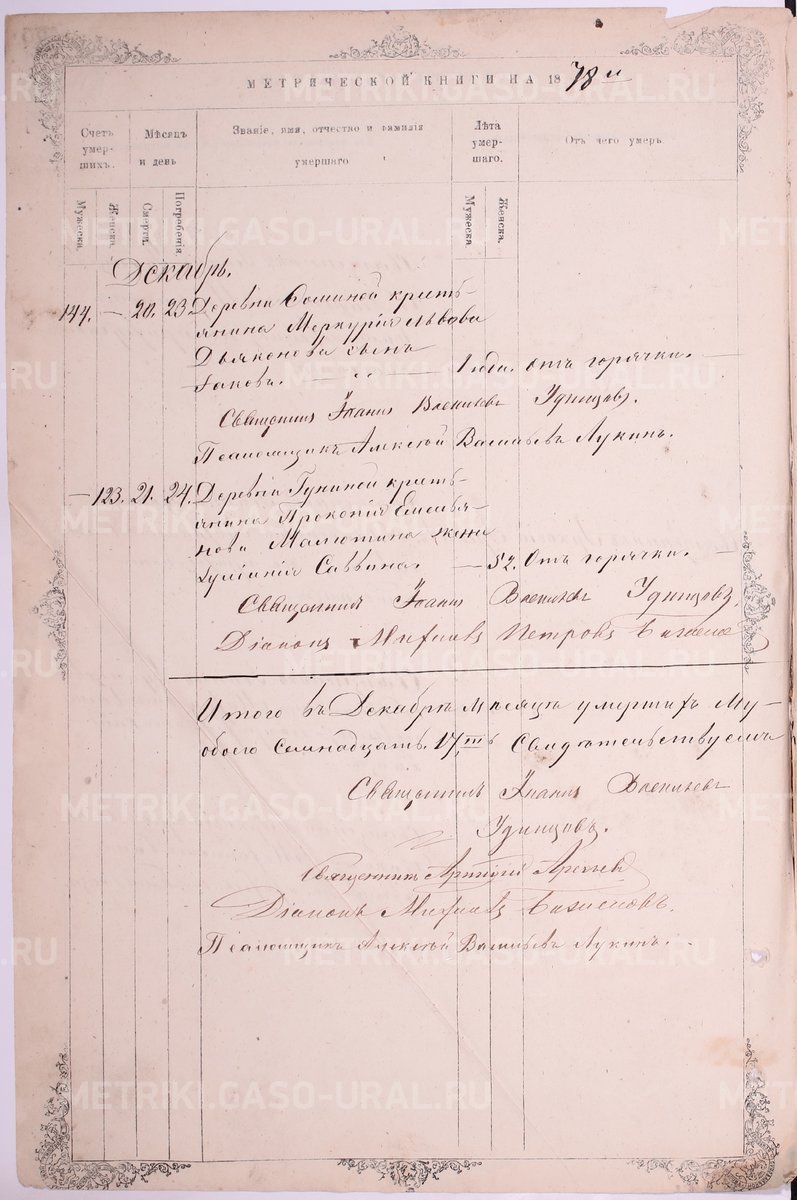 МЕТРИЧЕСКОЙ КНИГИ НА 1878 й
Счетъ умершихъ.
Мѣсяцъ и день
Званіе, имя, отчество и фамилія умершаго
Лѣта умершаго.
Отъ чего умеръ
Мужеска.
Женска.
Смерти.
Погребенія
Мужеска.
Женска.
Декабрь.
144. — 20. 23. Деревни Соминой кресть-
янина Меркурія Львова
Дьяконова сынъ
Іаковъ. — 1 года. отъ горячки. —
Священникъ Іоаннъ Удинцовъ.
Псаломщикъ Алексѣй Васильевъ Лукинъ.
— 123. 21. 24. Деревни Гуниной кресть-
янина Прокопія Емелья-
нова Малютина жена
Іуліанія Саввина. — 52. Отъ горячки. —
Священникъ Іоаннъ Удинцовъ.
Діаконъ Петровъ
Итого въ Декабрѣ мѣсяцѣ умершихъ Му-
семнадцать. 17, Свидѣтельствуемъ
Священникъ Іоаннъ
Удинцовъ.
Священникъ
Діаконъ
Псаломщикъ Алексѣй Васильевъ Лукинъ.
METRIKI.GASO-URAL.RU